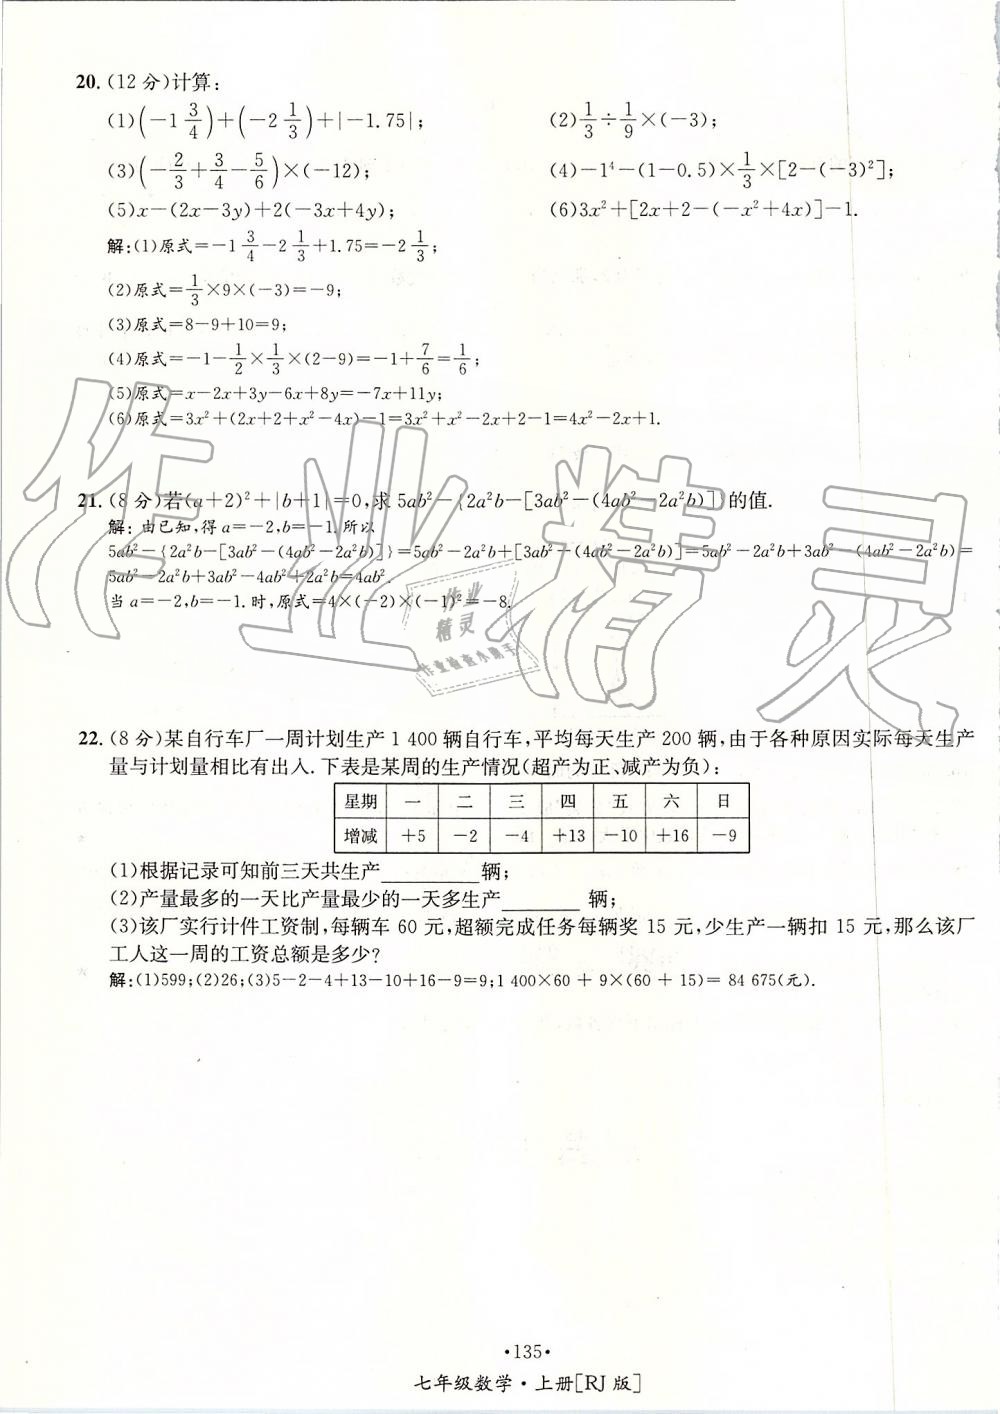 20. (12 分)计算:
(1)(-1 3/4)+(-2 1/3)+|-1.75|;    (2)1/3÷1/9×(-3);
(3)(-2/3+3/4-5/6)×(-12);    (4)-1⁴-(1-0.5)×1/3×[2-(-3)²];
(5)x-(2x-3y)+2(-3x+4y);    (6)3x²+[2x+2-(-x²+4x)]-1.
解:(1)原式=-1 3/4-2 1/3+1.75=-2 1/3;
(2)原式=1/3×9×(-3)=-9;
(3)原式=8-9+10=9;
(4)原式=-1-1/2×1/3×(2-9)=-1+7/6=1/6;
(5)原式=x-2x+3y-6x+8y=-7x+11y;
(6)原式=3x²+(2x+2+x²-4x)-1=3x²+x²-2x+2-1=4x²-2x+1.
21. (8 分)若(a+2)²+|b+1|=0,求 5ab²-{2a²b-[3ab²-(4ab²-2a²b)]}的值.
解: 由已知,得 a=-2,b=-1.所以
5ab²-{2a²b-[3ab²-(4ab²-2a²b)]}=5ab²-2a²b+[3ab²-(4ab²-2a²b)]=5ab²-2a²b+3ab²-(4ab²-2a²b)=
5ab²-2a²b+3ab²-4ab²+2a²b=4ab².
当 a=-2,b=-1.时,原式=4×(-2)×(-1)²=-8.
作业精灵
作业
精灵
作业检查小助手
22. (8 分)某自行车厂一周计划生产 1 400 辆自行车,平均每天生产 200 辆,由于各种原因实际每天生产
量与计划量相比有出入.下表是某周的生产情况(超产为正、减产为负):
星期 一 二 三 四 五 六 日
增减 +5 -2 -4 +13 -10 +16 -9
(1)根据记录可知前三天共生产________辆;
(2)产量最多的一天比产量最少的一天多生产________辆;
(3)该厂实行计件工资制,每辆车 60 元,超额完成任务每辆奖 15 元,少生产一辆扣 15 元,那么该厂
工人这一周的工资总额是多少?
解:(1)599;(2)26;(3)5-2-4+13-10+16-9=9;1 400×60 + 9×(60 + 15)= 84 675(元).
·135·
七年级数学·上册[RJ 版]